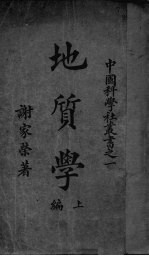 中國科學社叢書之一
地質學
上編
謝家榮著